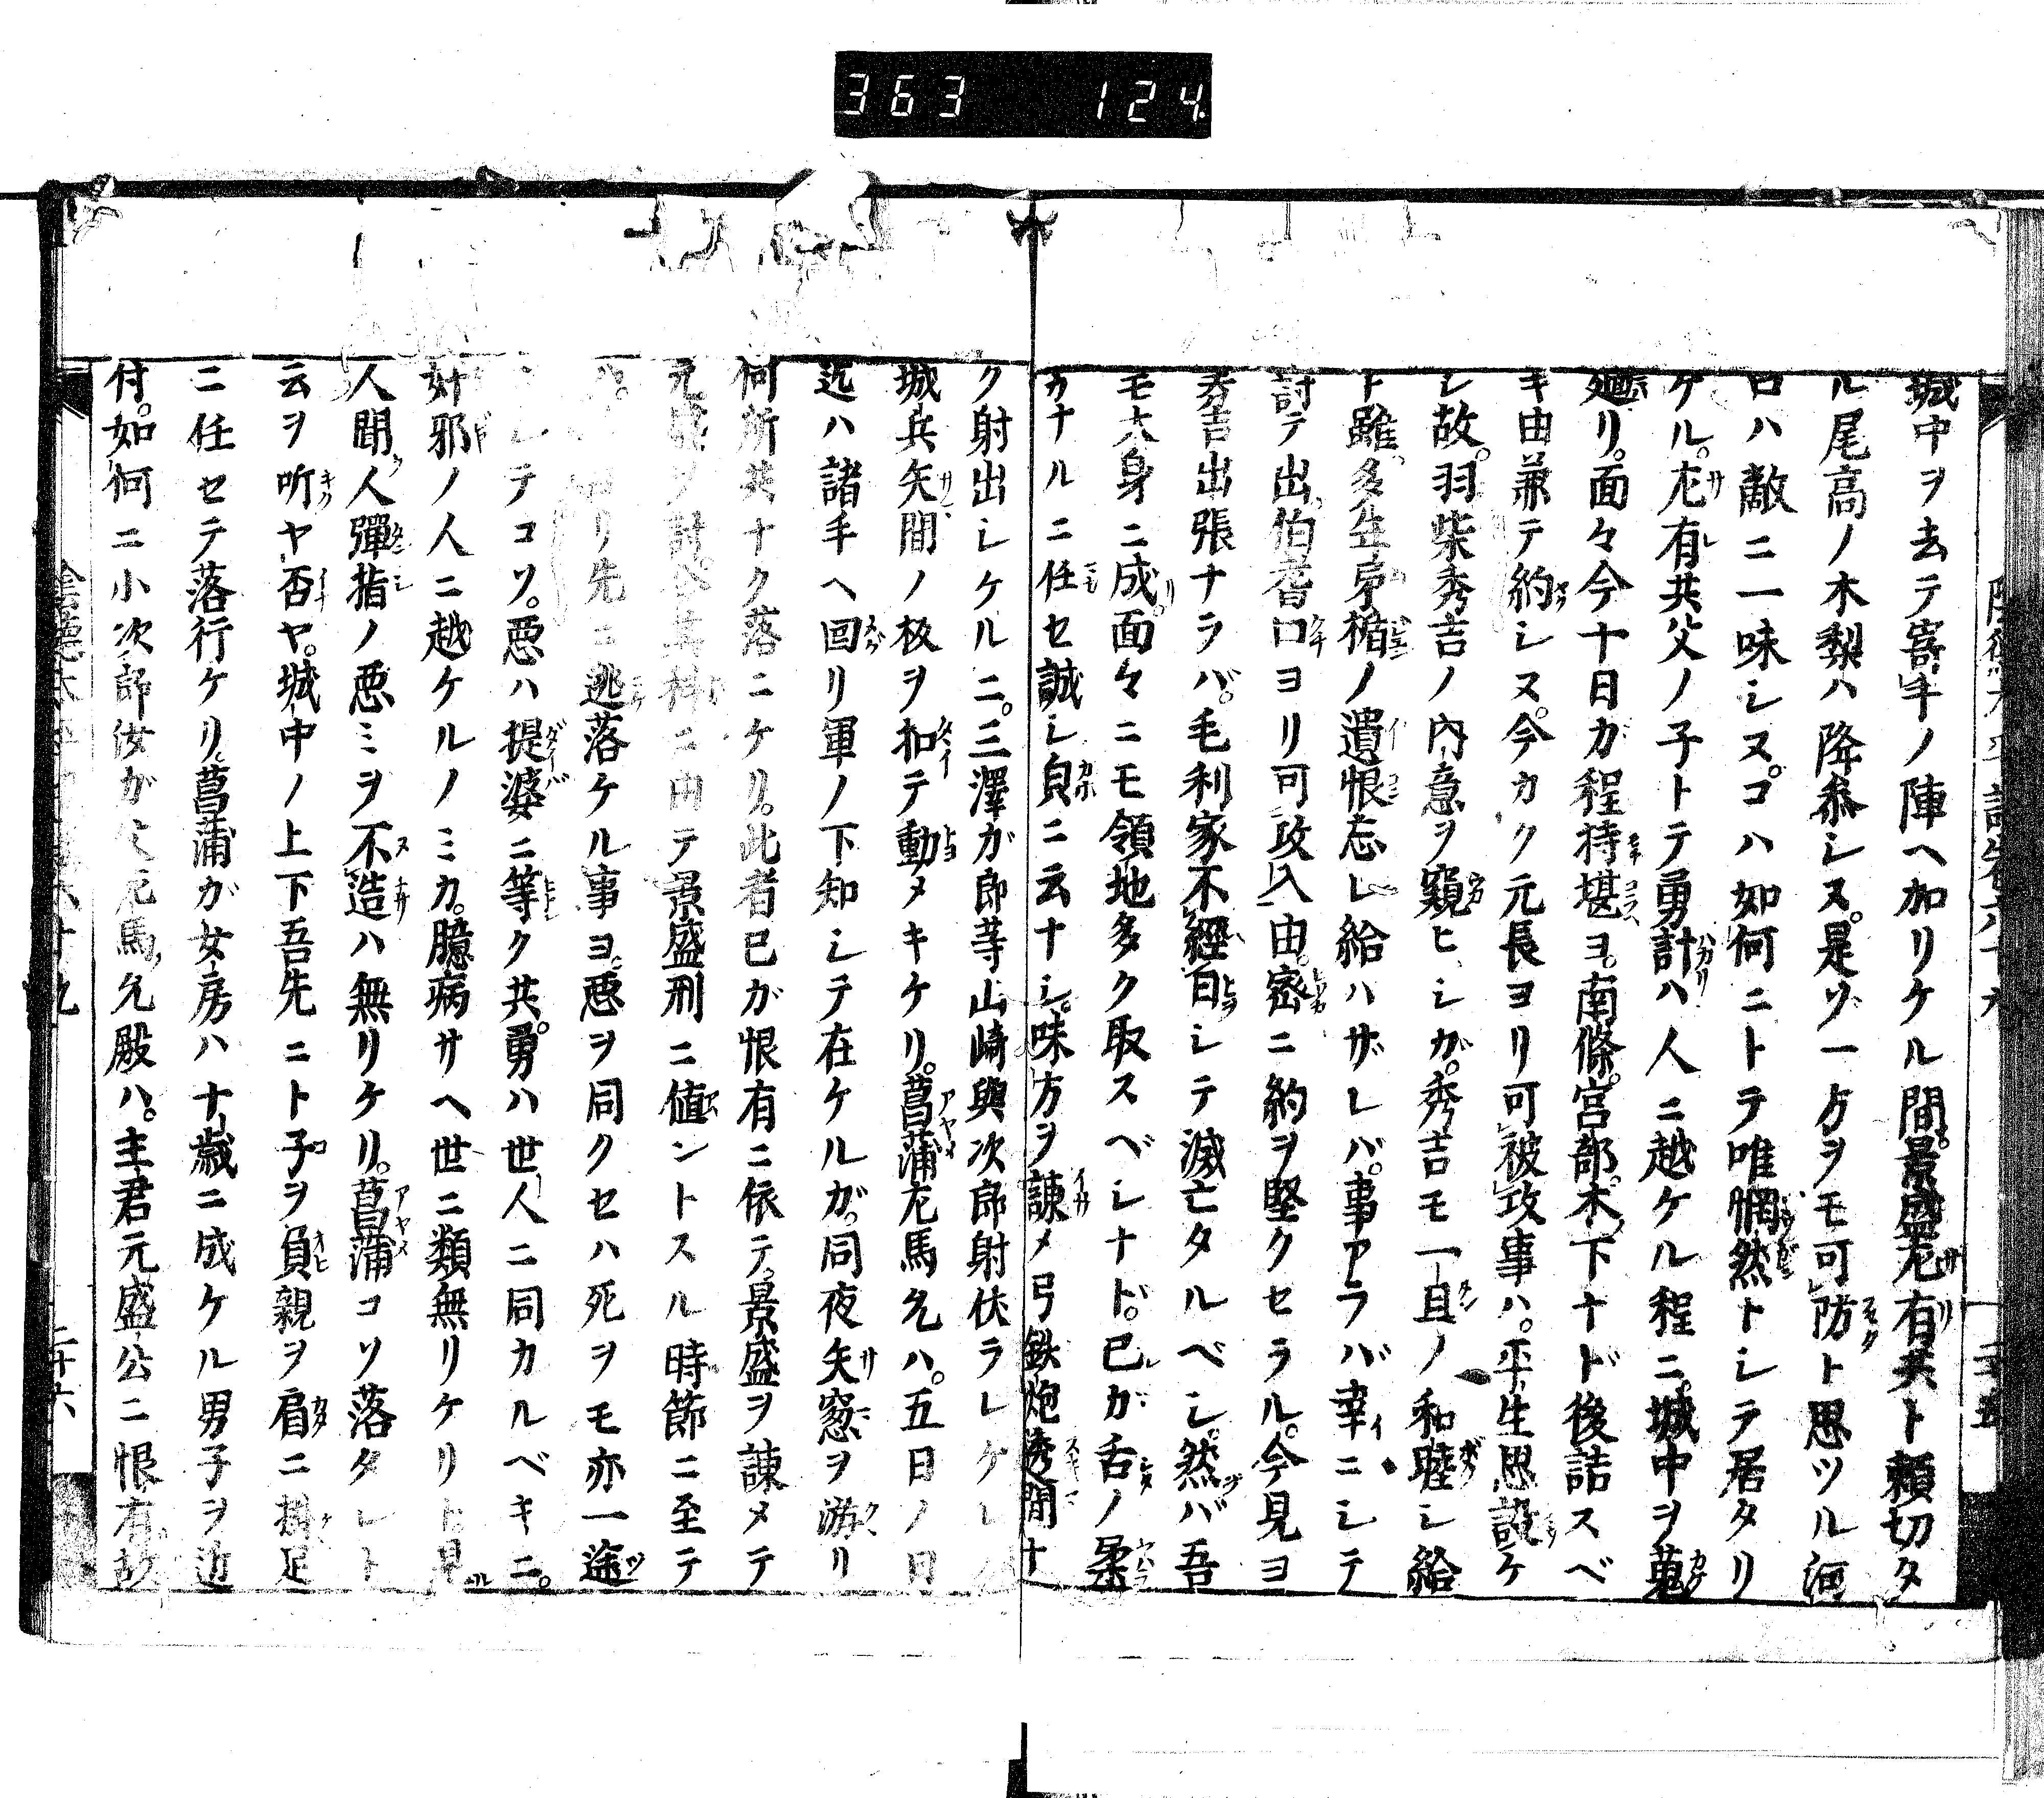 363 124
城中ヲ去テ寄手ノ陣ヘ加リケル間。景盛尨有共ト頼切タ
ル尾高ノ木梨ハ降参シヌ。是ソ一方ヲモ可防ト思ツル河
口ハ敵ニ一味シヌ。コハ如何ニトテ唯惘然トシテ居タリ
ケル。尨有共父ノ子トテ勇計ハ人ニ越ケル程ニ。城中ヲ蒐
廻リ。面々今十日ガ程持堪ヨ。南條。宮部。木下ナド後詰スベ
キ由兼テ約シヌ。今カク元長ヨリ可被攻事ハ。平生思設ケ
シ故。羽柴秀吉ノ内意ヲ窺ヒシガ。秀吉モ一旦ノ和睦シ給
ト雖。多年弟楯ノ遺恨忘レ給ハザレバ。事アラバ幸ニシテ
討テ出。伯耆口ヨリ可攻入由。密ニ約ヲ堅クセラル。今見ヨ
秀吉出張ナラバ。毛利家不經白シテ滅亡タルベシ。然バ吾
モ大身ニ成。面々ニモ領地多ク取スベシナド。己ガ舌ノ柔
カナルニ任セ誠シ負ニ云ナシ。味方ヲ諌メ弓鉄炮透間ナ
ク射出シケルニ。三澤ガ郎等山崎與次郎射伏ラレケレ
城兵矢間ノ板ヲ扣テ動メキケリ。菖蒲尨馬允ハ。五日ノ日
迄ハ諸手ヘ回リ軍ノ下知シテ在ケルガ。同夜矢窓ヲ潜リ
何所共ナク落ニケリ。此者己ガ恨有ニ依テ景盛ヲ諌メテ
元盛ヲ討。其科ニ由テ景盛刑ニ値ントスル時節ニ至テ
リ先ニ逃落ケル事ヨ。悪ヲ同クセハ死ヲモ亦一途
シテコソ。悪ハ提婆ニ等ク共。勇ハ世人ニ同カルベキニ。
奸邪ノ人ニ越ケルノミカ。臆病サヘ世ニ類無リケリト見
人聞人彈指ノ悪ミヲ不造ハ無リケリ。菖蒲コソ落タレト
云ヲ听ヤ否ヤ。城中ノ上下吾先ニト子ヲ負親ヲ肩ニ掛足
ニ任セテ落行ケリ。菖蒲ガ女房ハ十歳ニ成ケル男子ヲ近
付。如何ニ小次郎汝ガ父尨馬允殿ハ。主君元盛公ニ恨有故
二十六